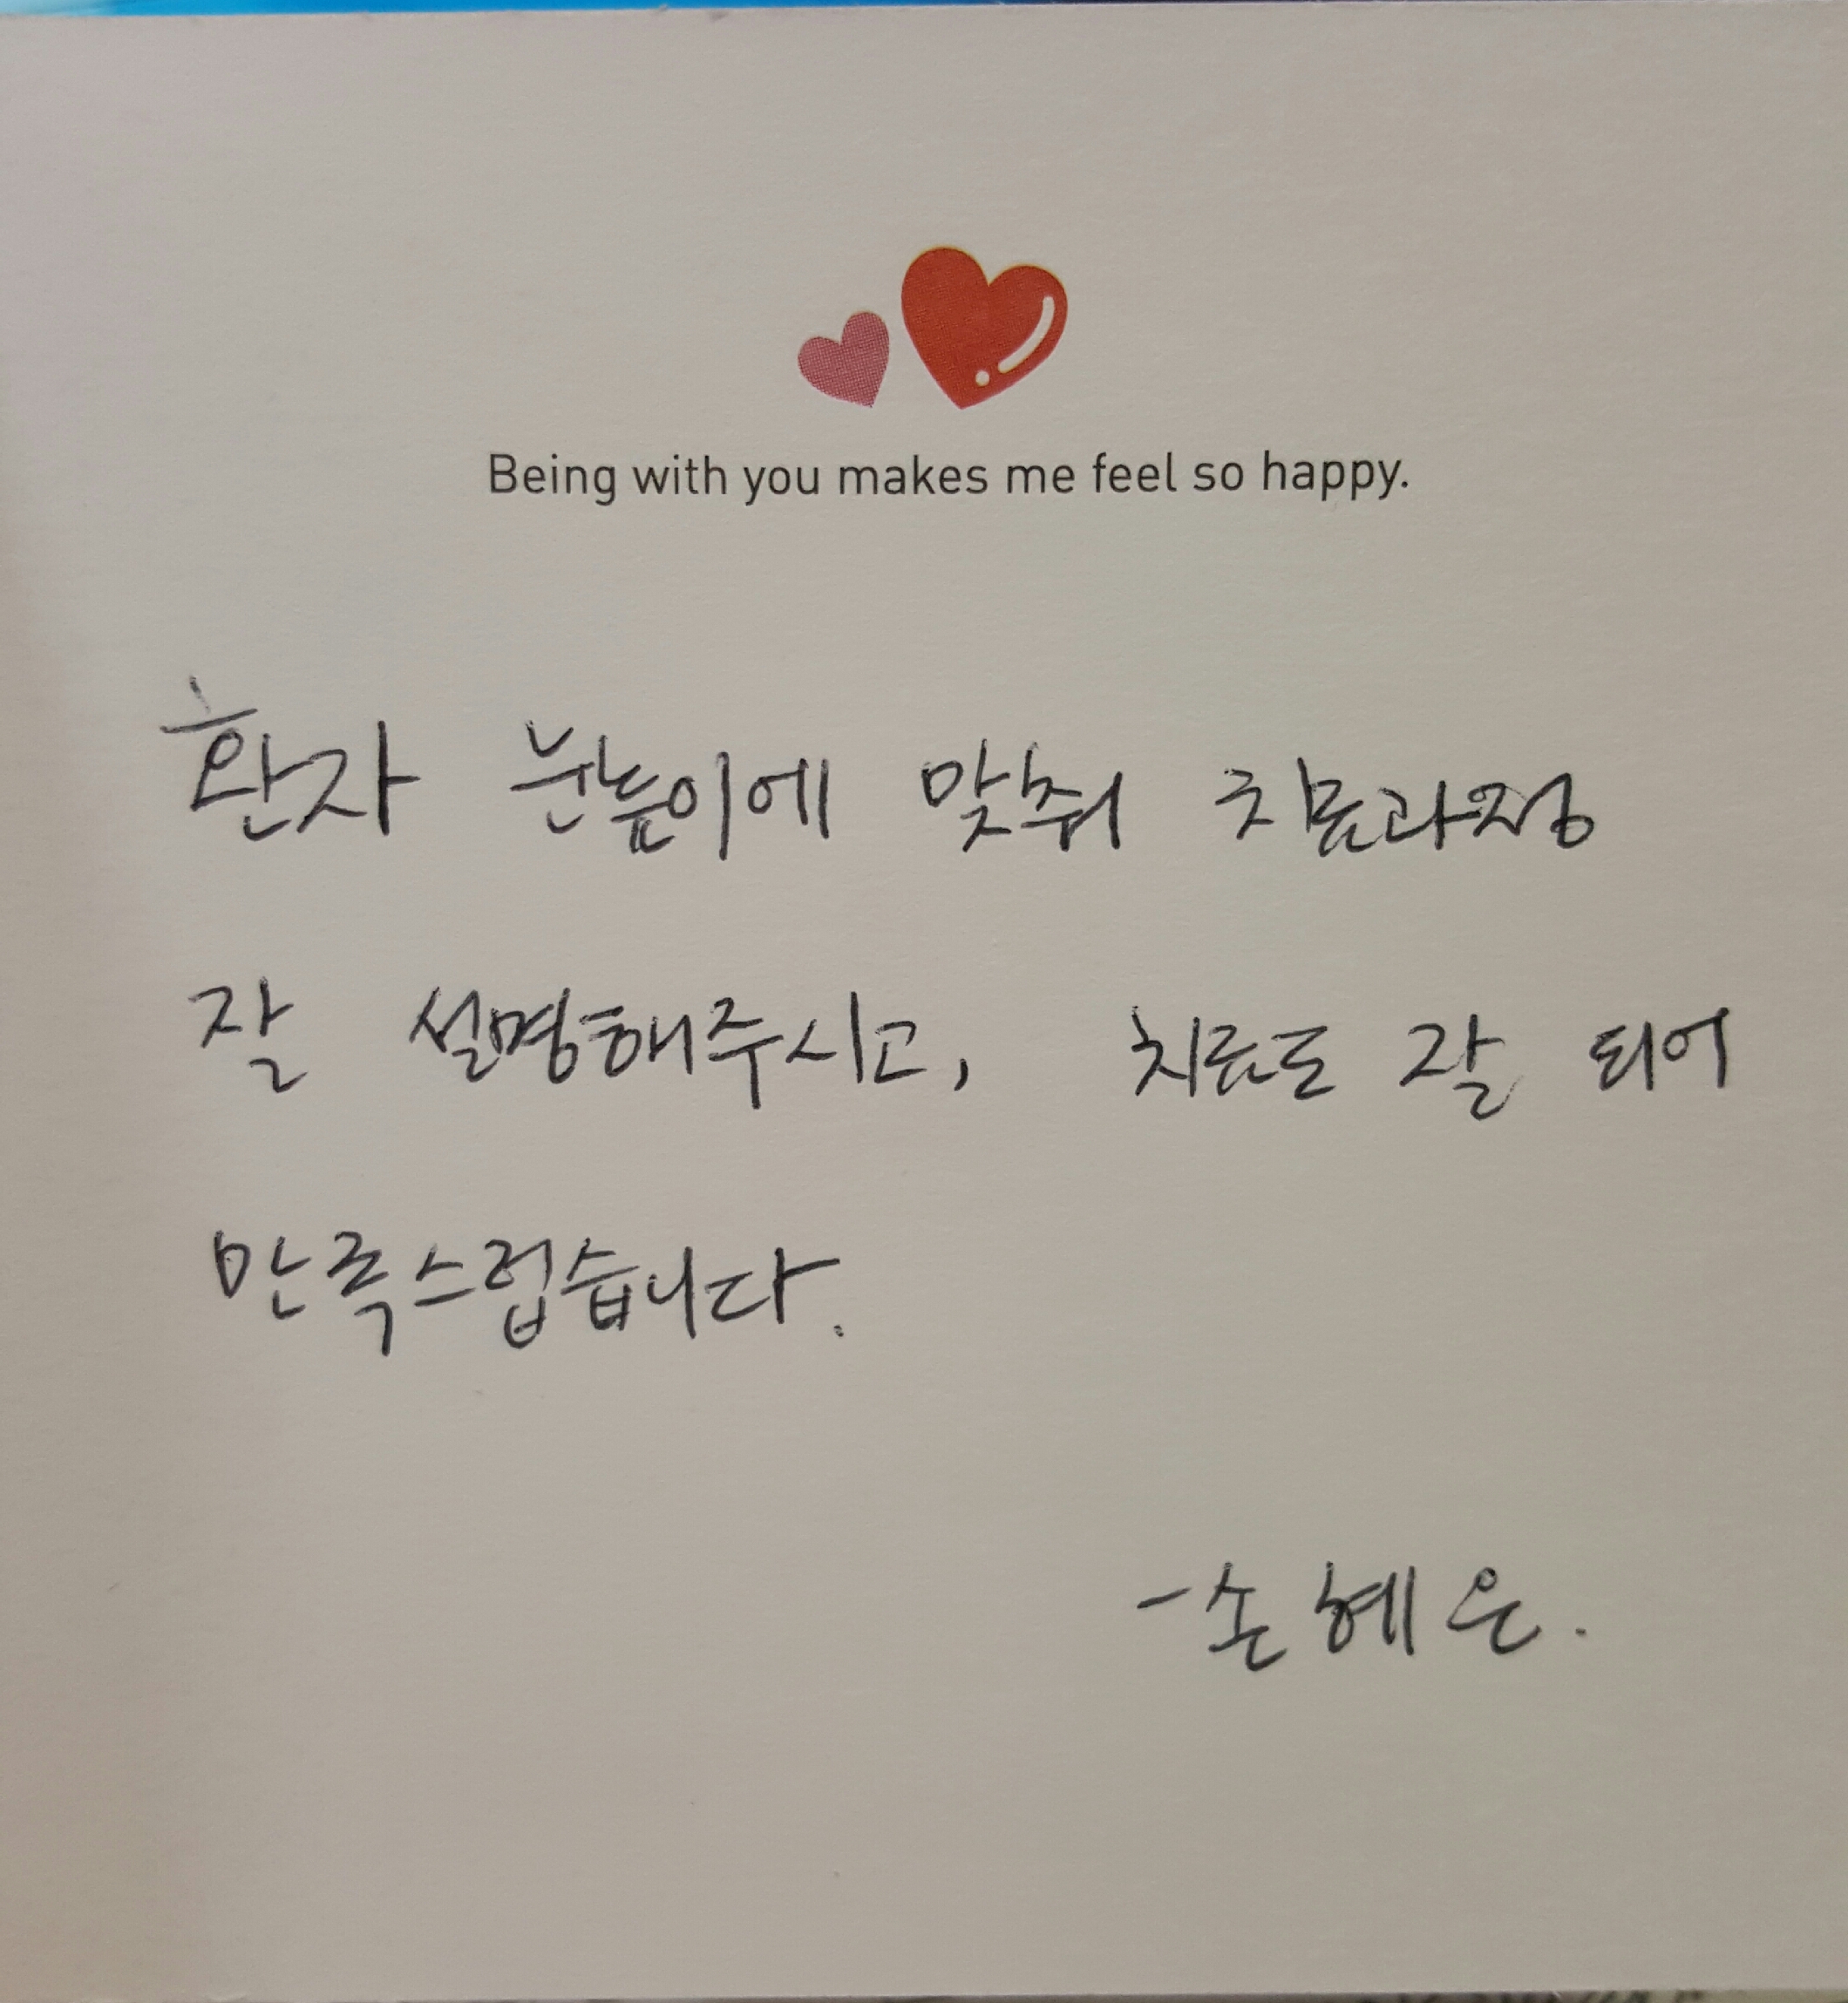 Being with you makes me feel so happy.
환자 눈높이에 맞춰 치료과정
잘 설명해주시고, 치료도 잘 되어
만족스럽습니다.
- 손혜은.